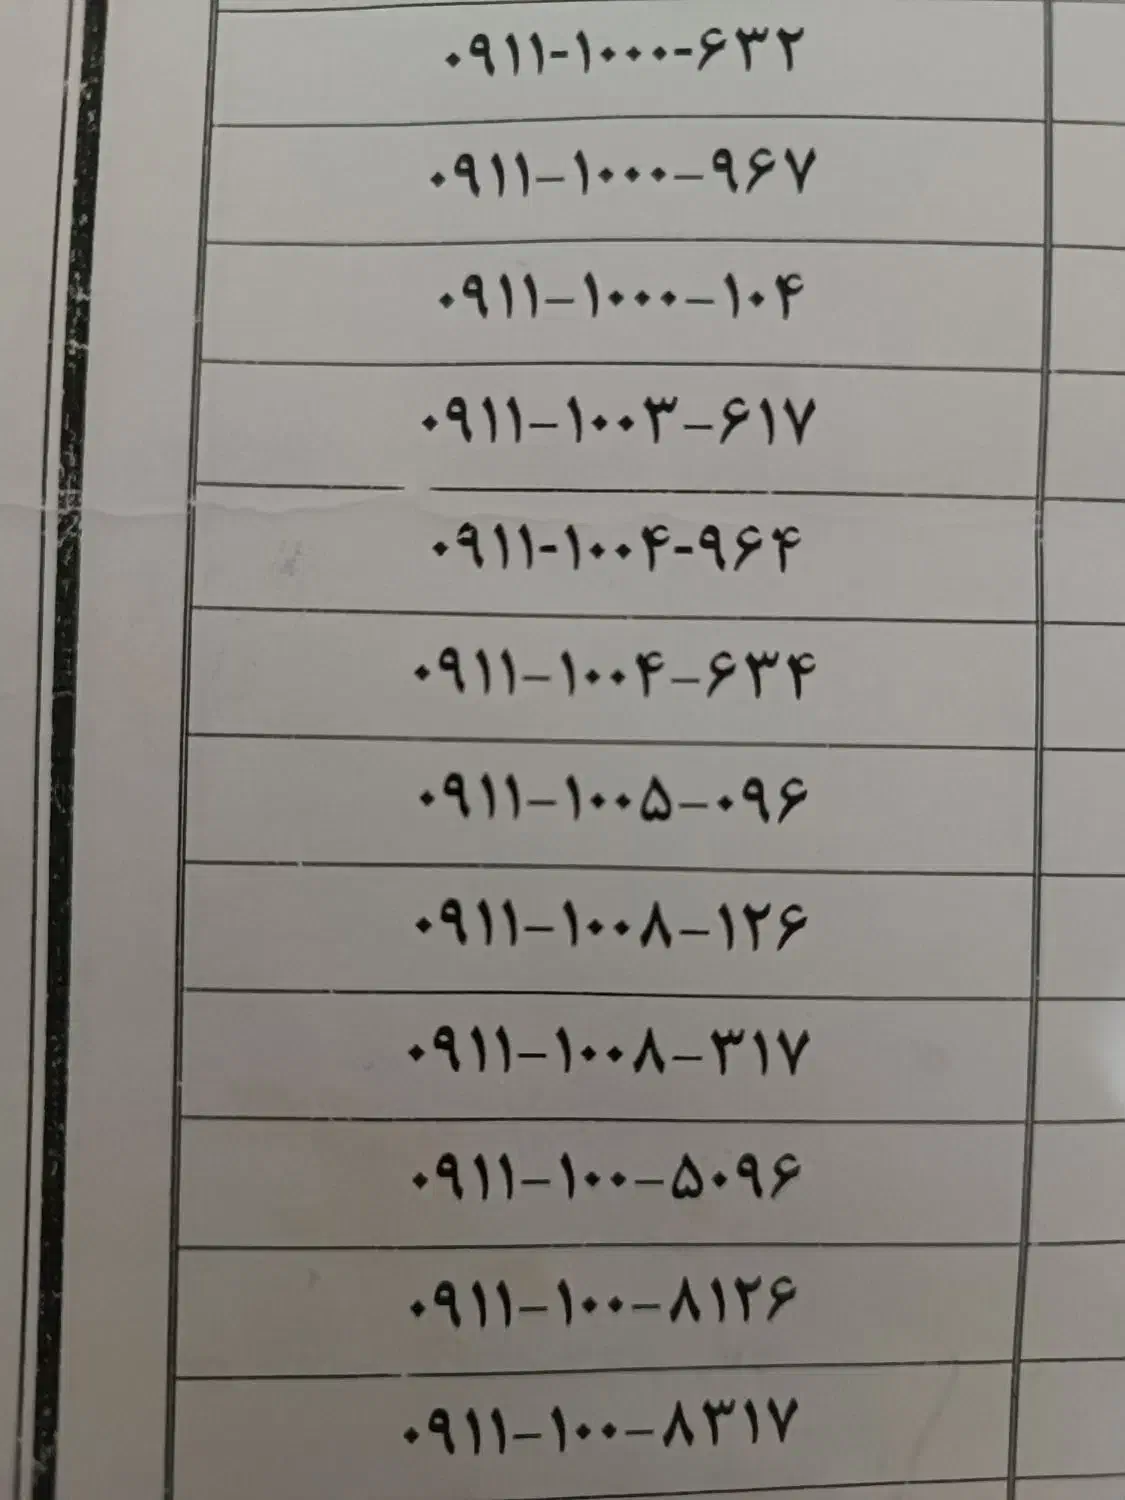 ۰۹۱۱-۱۰۰۰-۶۳۲
۰۹۱۱-۱۰۰۰-۹۶۷
۰۹۱۱-۱۰۰۰-۱۰۴
۰۹۱۱-۱۰۰۳-۶۱۷
۰۹۱۱-۱۰۰۴-۹۶۴
۰۹۱۱-۱۰۰۴-۶۳۴
۰۹۱۱-۱۰۰۵-۰۹۶
۰۹۱۱-۱۰۰۸-۱۲۶
۰۹۱۱-۱۰۰۸-۳۱۷
۰۹۱۱-۱۰۰-۵۰۹۶
۰۹۱۱-۱۰۰-۸۱۲۶
۰۹۱۱-۱۰۰-۸۳۱۷